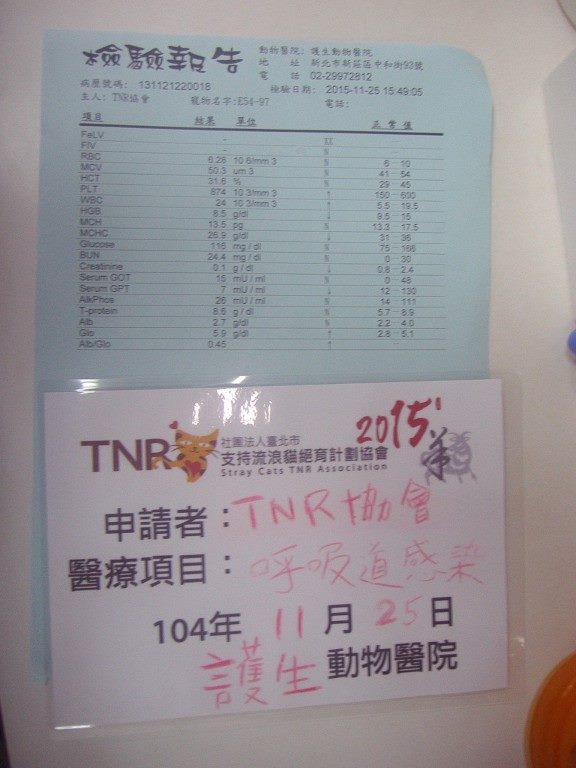 檢驗報告
動物醫院: 護生動物醫院
地 址 新北市新莊區中和街93號
電 話 02-29972812
病歷號碼: 131121220018 檢驗日期: 2015-11-25 15:49:05
主人: TNR協會 寵物名字:E54-97 電話:
項目 結果 單位 正 常 值
FeLV -
FIV - N
RBC 6.26 10 6/mm 3 N 6 - 10
MCV 50.3 um 3 N 41 - 54
HCT 31.6 % N 29 - 45
PLT 874 10 3/mm 3 ↑ 150 - 600
WBC 24 10 3/mm 3 ↑ 5.5 - 19.5
HGB 8.5 g/dl ↓ 9.5 - 15
MCH 13.5 pg N 13.3 - 17.5
MCHC 26.9 g/dl ↓ 31 - 36
Glucose 116 mg / dl N 75 - 166
BUN 24.4 mg / dl N 0 - 30
Creatinine 0.1 g / dl ↓ 0.8 - 2.4
Serum GOT 15 mU / ml N 0 - 48
Serum GPT 7 mU / ml ↓ 12 - 130
AlkPhos 26 mU / ml N 14 - 111
T-protein 8.6 g / dl N 5.7 - 8.9
Alb 2.7 g/dl N 2.2 - 4.0
Glo 5.9 g/dl ↑ 2.8 - 5.1
Alb/Glo 0.45
TNR 社團法人臺北市
支持流浪貓絕育計劃協會
Stray Cats TNR Association
2015'
申請者：TNR協會
醫療項目：呼吸道感染
104年 11 月 25 日
護生 動物醫院